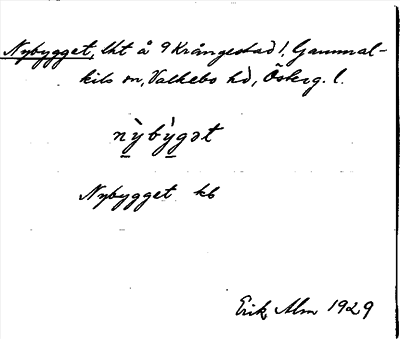 Nybygget, lht å 9 Krångestad!, Gammal-
kils sn, Valkebo hd, Österg. l.
nỳbỳgət
Nybygget kb
Erik Alm 1929